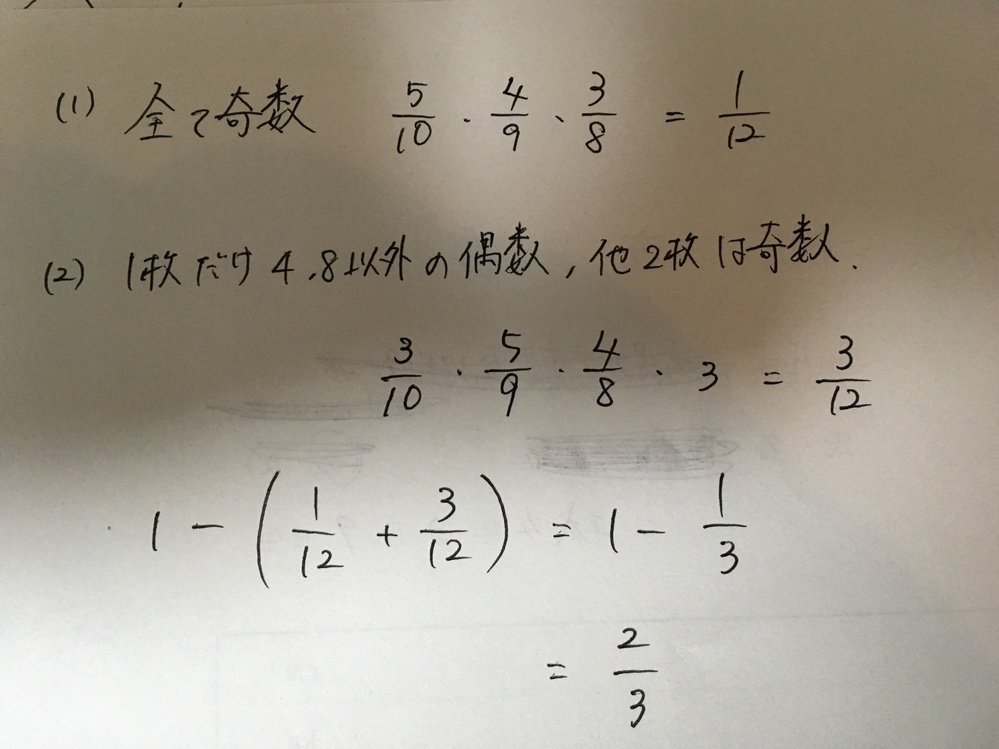 (1) 全て奇数 5/10 · 4/9 · 3/8 = 1/12
(2) 1枚だけ 4,8以外の偶数,他2枚は奇数.
3/10 · 5/9 · 4/8 · 3 = 3/12
1 - (1/12 + 3/12) = 1 - 1/3
= 2/3